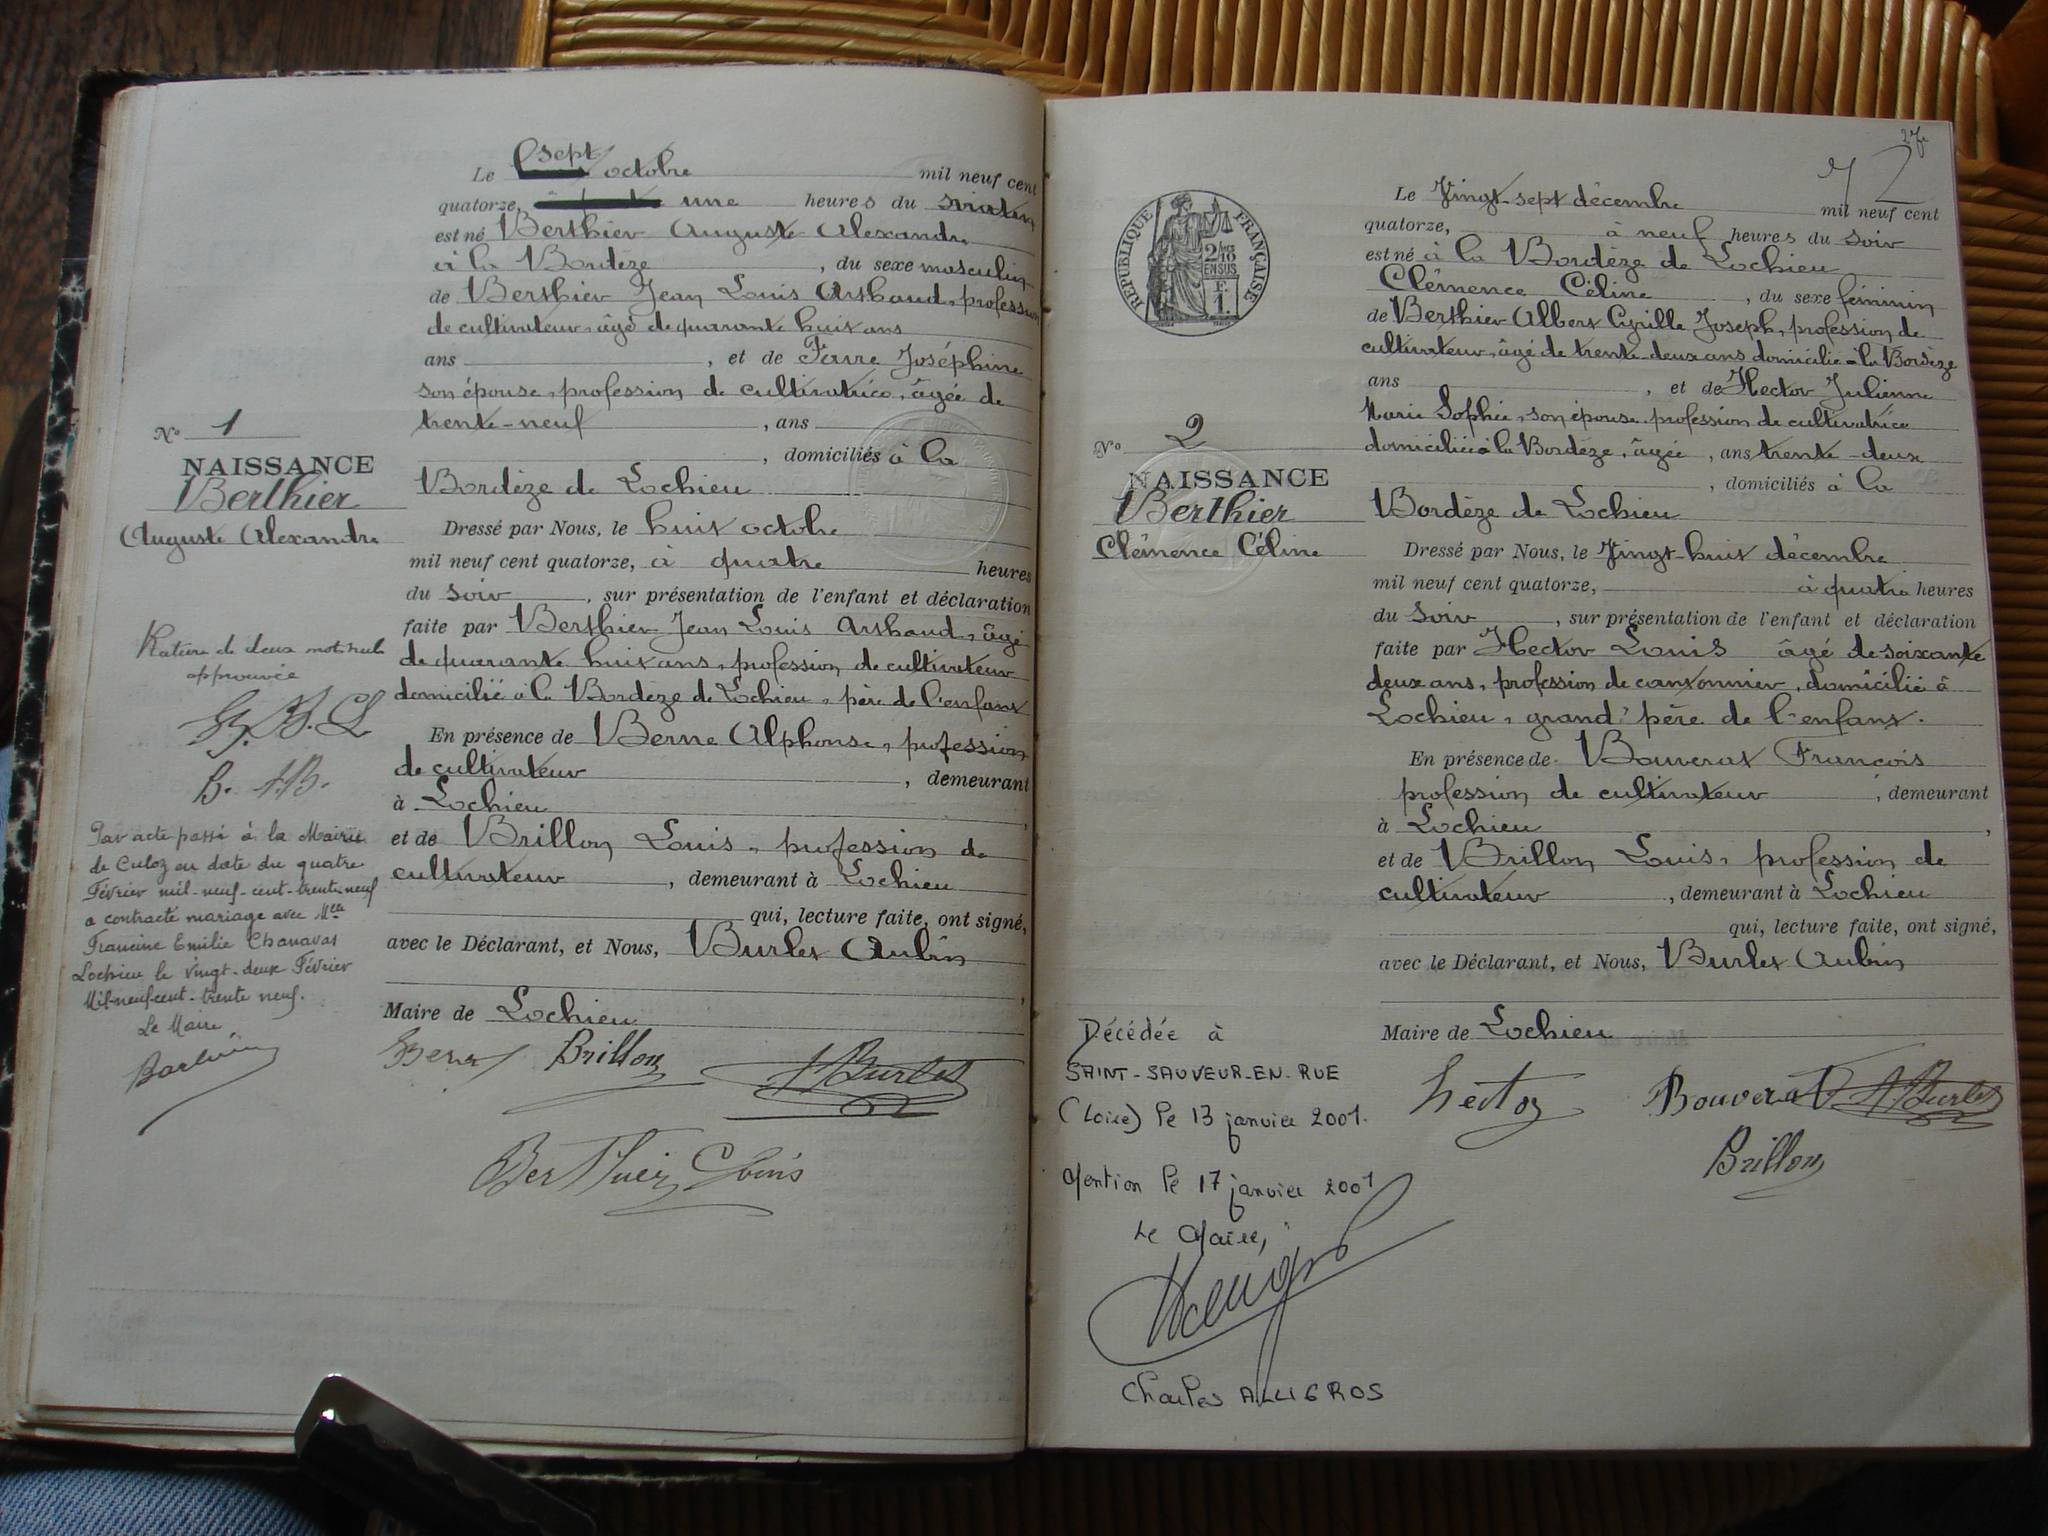 sept
Le octobre mil neuf cent
quatorze, une heures du
est né Berthier Auguste Alexandre
à la Bordèze, du sexe masculin
de Berthier Jean Louis Arthaud, profession
de cultivateur, âgé de quarante huit ans
ans, et de Favre Joséphine
son épouse, profession de cultivatrice, âgée de
trente-neuf, ans
, domiciliés à la
Bordèze de Lochieu
Dressé par Nous, le huit octobre
mil neuf cent quatorze, à quatre heures
du soir, sur présentation de l'enfant et déclaration
faite par Berthier Jean Louis Arthaud, âgé
de quarante huit ans, profession de cultivateur
domicilié à la Bordèze de Lochieu, père de l'enfant
En présence de Berne Alphonse, profession
de cultivateur, demeurant
à Lochieu,
et de Brillon Louis, profession de
cultivateur, demeurant à Lochieu
qui, lecture faite, ont signé,
avec le Déclarant, et Nous, Burlet Aubin
,
Maire de Lochieu
Berne Brillon Burlet
Berthier Louis
N° 1
NAISSANCE
Berthier
Auguste Alexandre
Rature de deux mots nuls
approuvée
B.
Par acte passé à la Mairie
de Culoz en date du quatre
Février mil-neuf-cent-trente-neuf
a contracté mariage avec Melle
Francine Emilie Chanavas
Lochieu le vingt-deux Février
Mil-neuf-cent-trente neuf.
Le Maire,
72
RÉPUBLIQUE FRANÇAISE
2/10
EN SUS
F.
1.
Le Vingt-sept décembre mil neuf cent
quatorze, à neuf heures du soir
est né à la Bordèze de Lochieu
Clémence Céline, du sexe féminin
de Berthier Albert Cyrille Joseph, profession de
cultivateur, âgé de trente-deux ans domicilié à la Bordèze
ans, et de Hector Julienne
Marie Sophie, son épouse, profession de cultivatrice
domiciliée à la Bordèze, âgée, ans trente-deux
, domiciliés à la
Bordèze de Lochieu
Dressé par Nous, le Vingt-huit décembre
mil neuf cent quatorze, à quatre heures
du soir, sur présentation de l'enfant et déclaration
faite par Hector Louis âgé de soixante
deux ans, profession de cantonnier, domicilié à
Lochieu, grand' père de l'enfant.
En présence de Bouverat François
profession de cultivateur, demeurant
à Lochieu,
et de Brillon Louis, profession de
cultivateur, demeurant à Lochieu
qui, lecture faite, ont signé,
avec le Déclarant, et Nous, Burlet Aubin
Maire de Lochieu
hector Bouverat Burlet
Brillon
N° 2
NAISSANCE
Berthier
Clémence Céline
Décédée à
SAINT-SAUVEUR-EN-RUE
(Loire) le 13 janvier 2001.
Mention le 17 janvier 2001
Le Maire,
Charles ALLIGROS